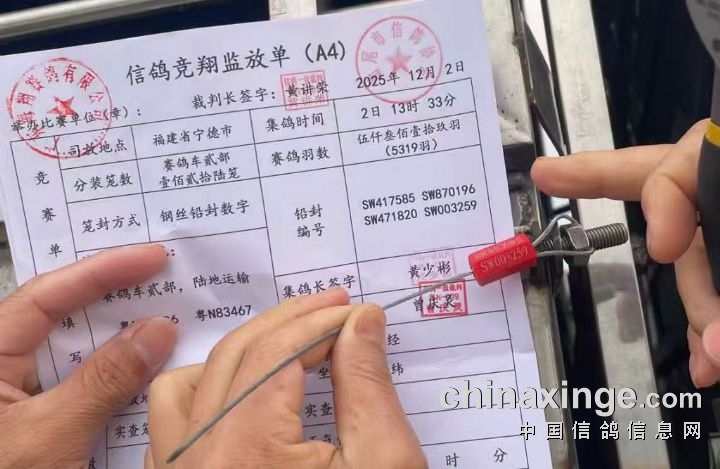 信鸽竞翔监放单（A4）
举办比赛单位（章）：
裁判长签字：黄讲荣
2025年 12月 2日
竞赛单
填写
司放地点
福建省宁德市
集鸽时间
2日 13时 33分
分装笼数
赛鸽车贰部
壹佰贰拾陆笼
赛鸽羽数
伍仟叁佰壹拾玖羽
（5319羽）
笼封方式
钢丝铅封数字
铅封
编号
SW417585 SW870196
SW471820 SW003259
赛鸽车贰部，陆地运输
粤N83467
集鸽长签字
黄少彬
曾庆灵
SW003259
经
纬
实查
时 分
chinaxinge.com
中国信鸽信息网